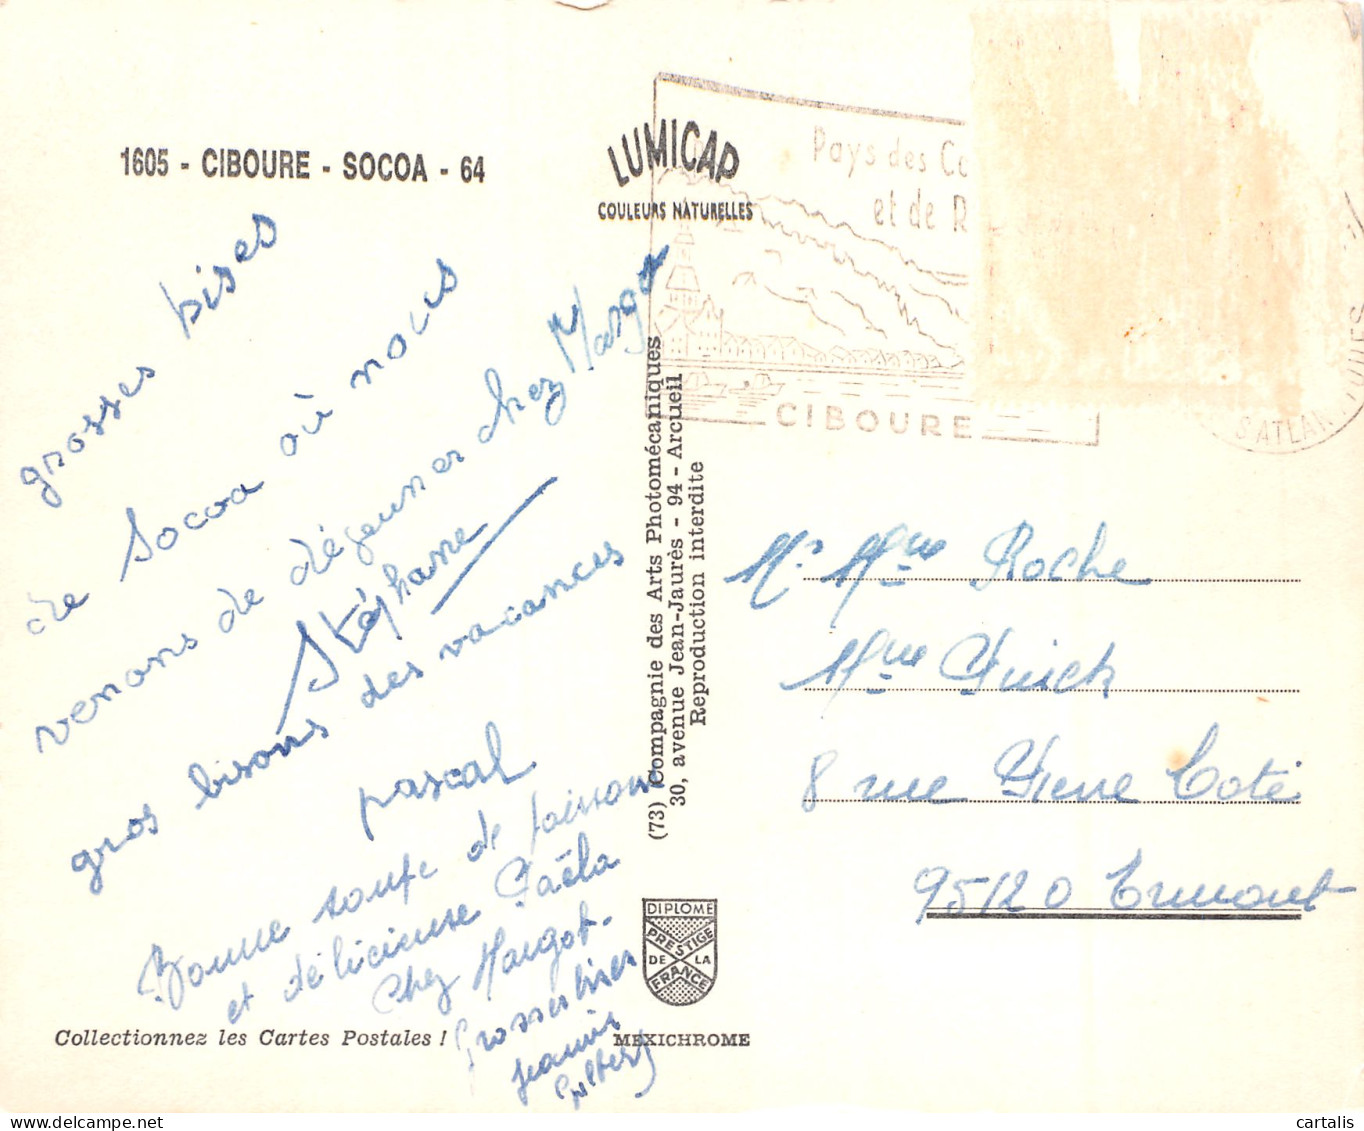 1605 - CIBOURE - SOCOA - 64
LUMICAP
COULEURS NATURELLES
Pays des Co
et de R
CIBOURE
S ATLAN
grosses bises
de Socoa où nous
venons de dégeuner chez Margot
Stéphane
gros bisons des vacances
pascal
Bonne soupe de poissons
et délicieuse Paëla
Chez Margot.
Grosses bises
Jeannie
Gilbert
(73) Compagnie des Arts Photomécaniques
30, avenue Jean-Jaurès - 94 - Arcueil
Reproduction interdite
Mr Mme Roche
Mme
8 rue Pierre Coté
95120 Ermont
DIPLOME
PRESTIGE
DE LA
FRANCE
MEXICHROME
Collectionnez les Cartes Postales !
cartalis